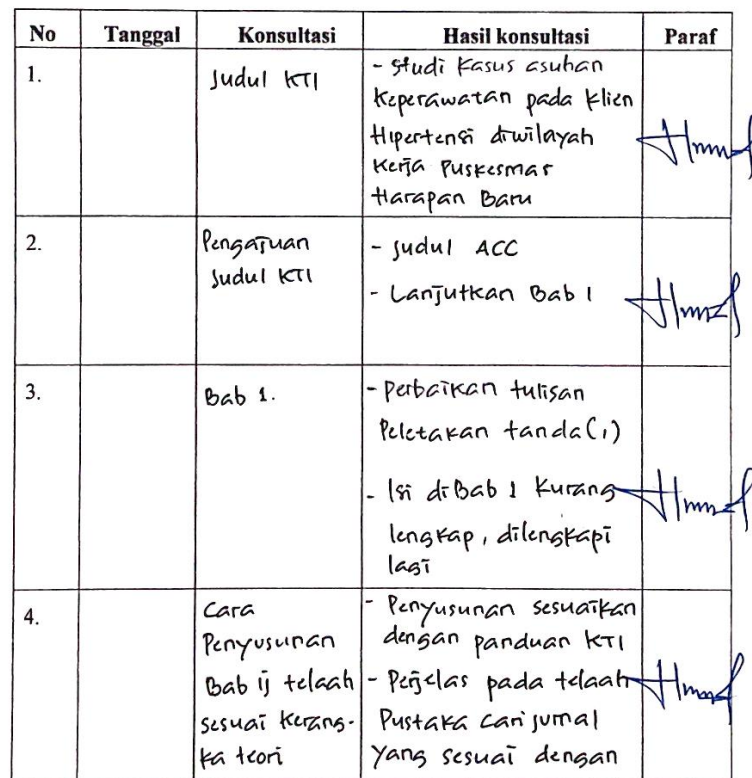 No Tanggal Konsultasi Hasil konsultasi Paraf
1. Judul KTI - Studi Kasus asuhan
Keperawatan pada klien
Hipertensi diwilayah
Kerja Puskesmas
Harapan Baru
2. Pengajuan - Judul ACC
Judul KTI - Lanjutkan Bab 1
3. Bab 1. - Perbaikan tulisan
Peletakan tanda (,)
- Isi di Bab 1 Kurang
lengkap, dilengkapi
lagi
4. Cara - Penyusunan sesuaikan
Penyusunan dengan panduan KTI
Bab ij telaah - Perjelas pada telaah
sesuai Kerang- Pustaka cari jurnal
ka teori yang sesuai dengan